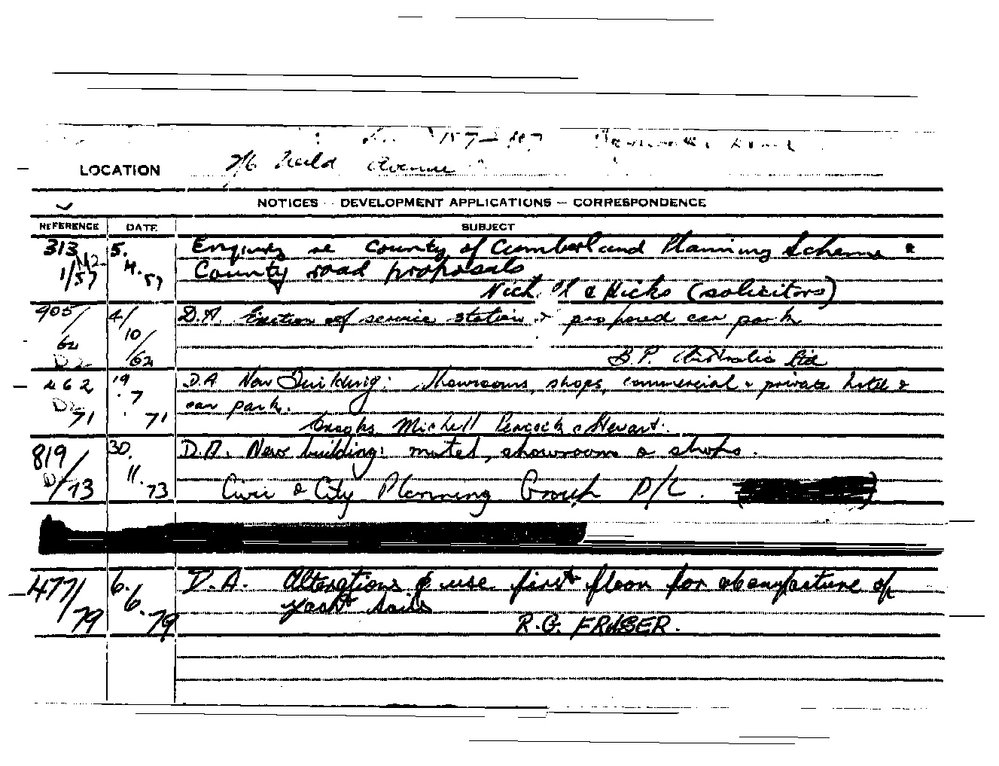 157-
LOCATION Avenue
NOTICES - DEVELOPMENT APPLICATIONS - CORRESPONDENCE
REFERENCE DATE SUBJECT
313 5. Enquiry re County of Cumberland Planning Scheme &
1/57 4. 57 County road proposals
Hicks (solicitors)
905/ 4/ D.A. Erection of service station & proposed car park
62 10
D2 /62 B.P. Australia Ltd
462 19 D.A New Building: Showrooms, shops, commercial & private hotel &
D2 7 car park.
71 71 Michell Peacock & Stewart.
819/ 30. D.A. New building: motel, showroom & shops.
D /73 11. 73 Civic & City Planning Group P/L.
477/ 6. D.A. Alterations & use first floor for manufacture of
79 6. 79 yacht sails
R.G. FRASER.